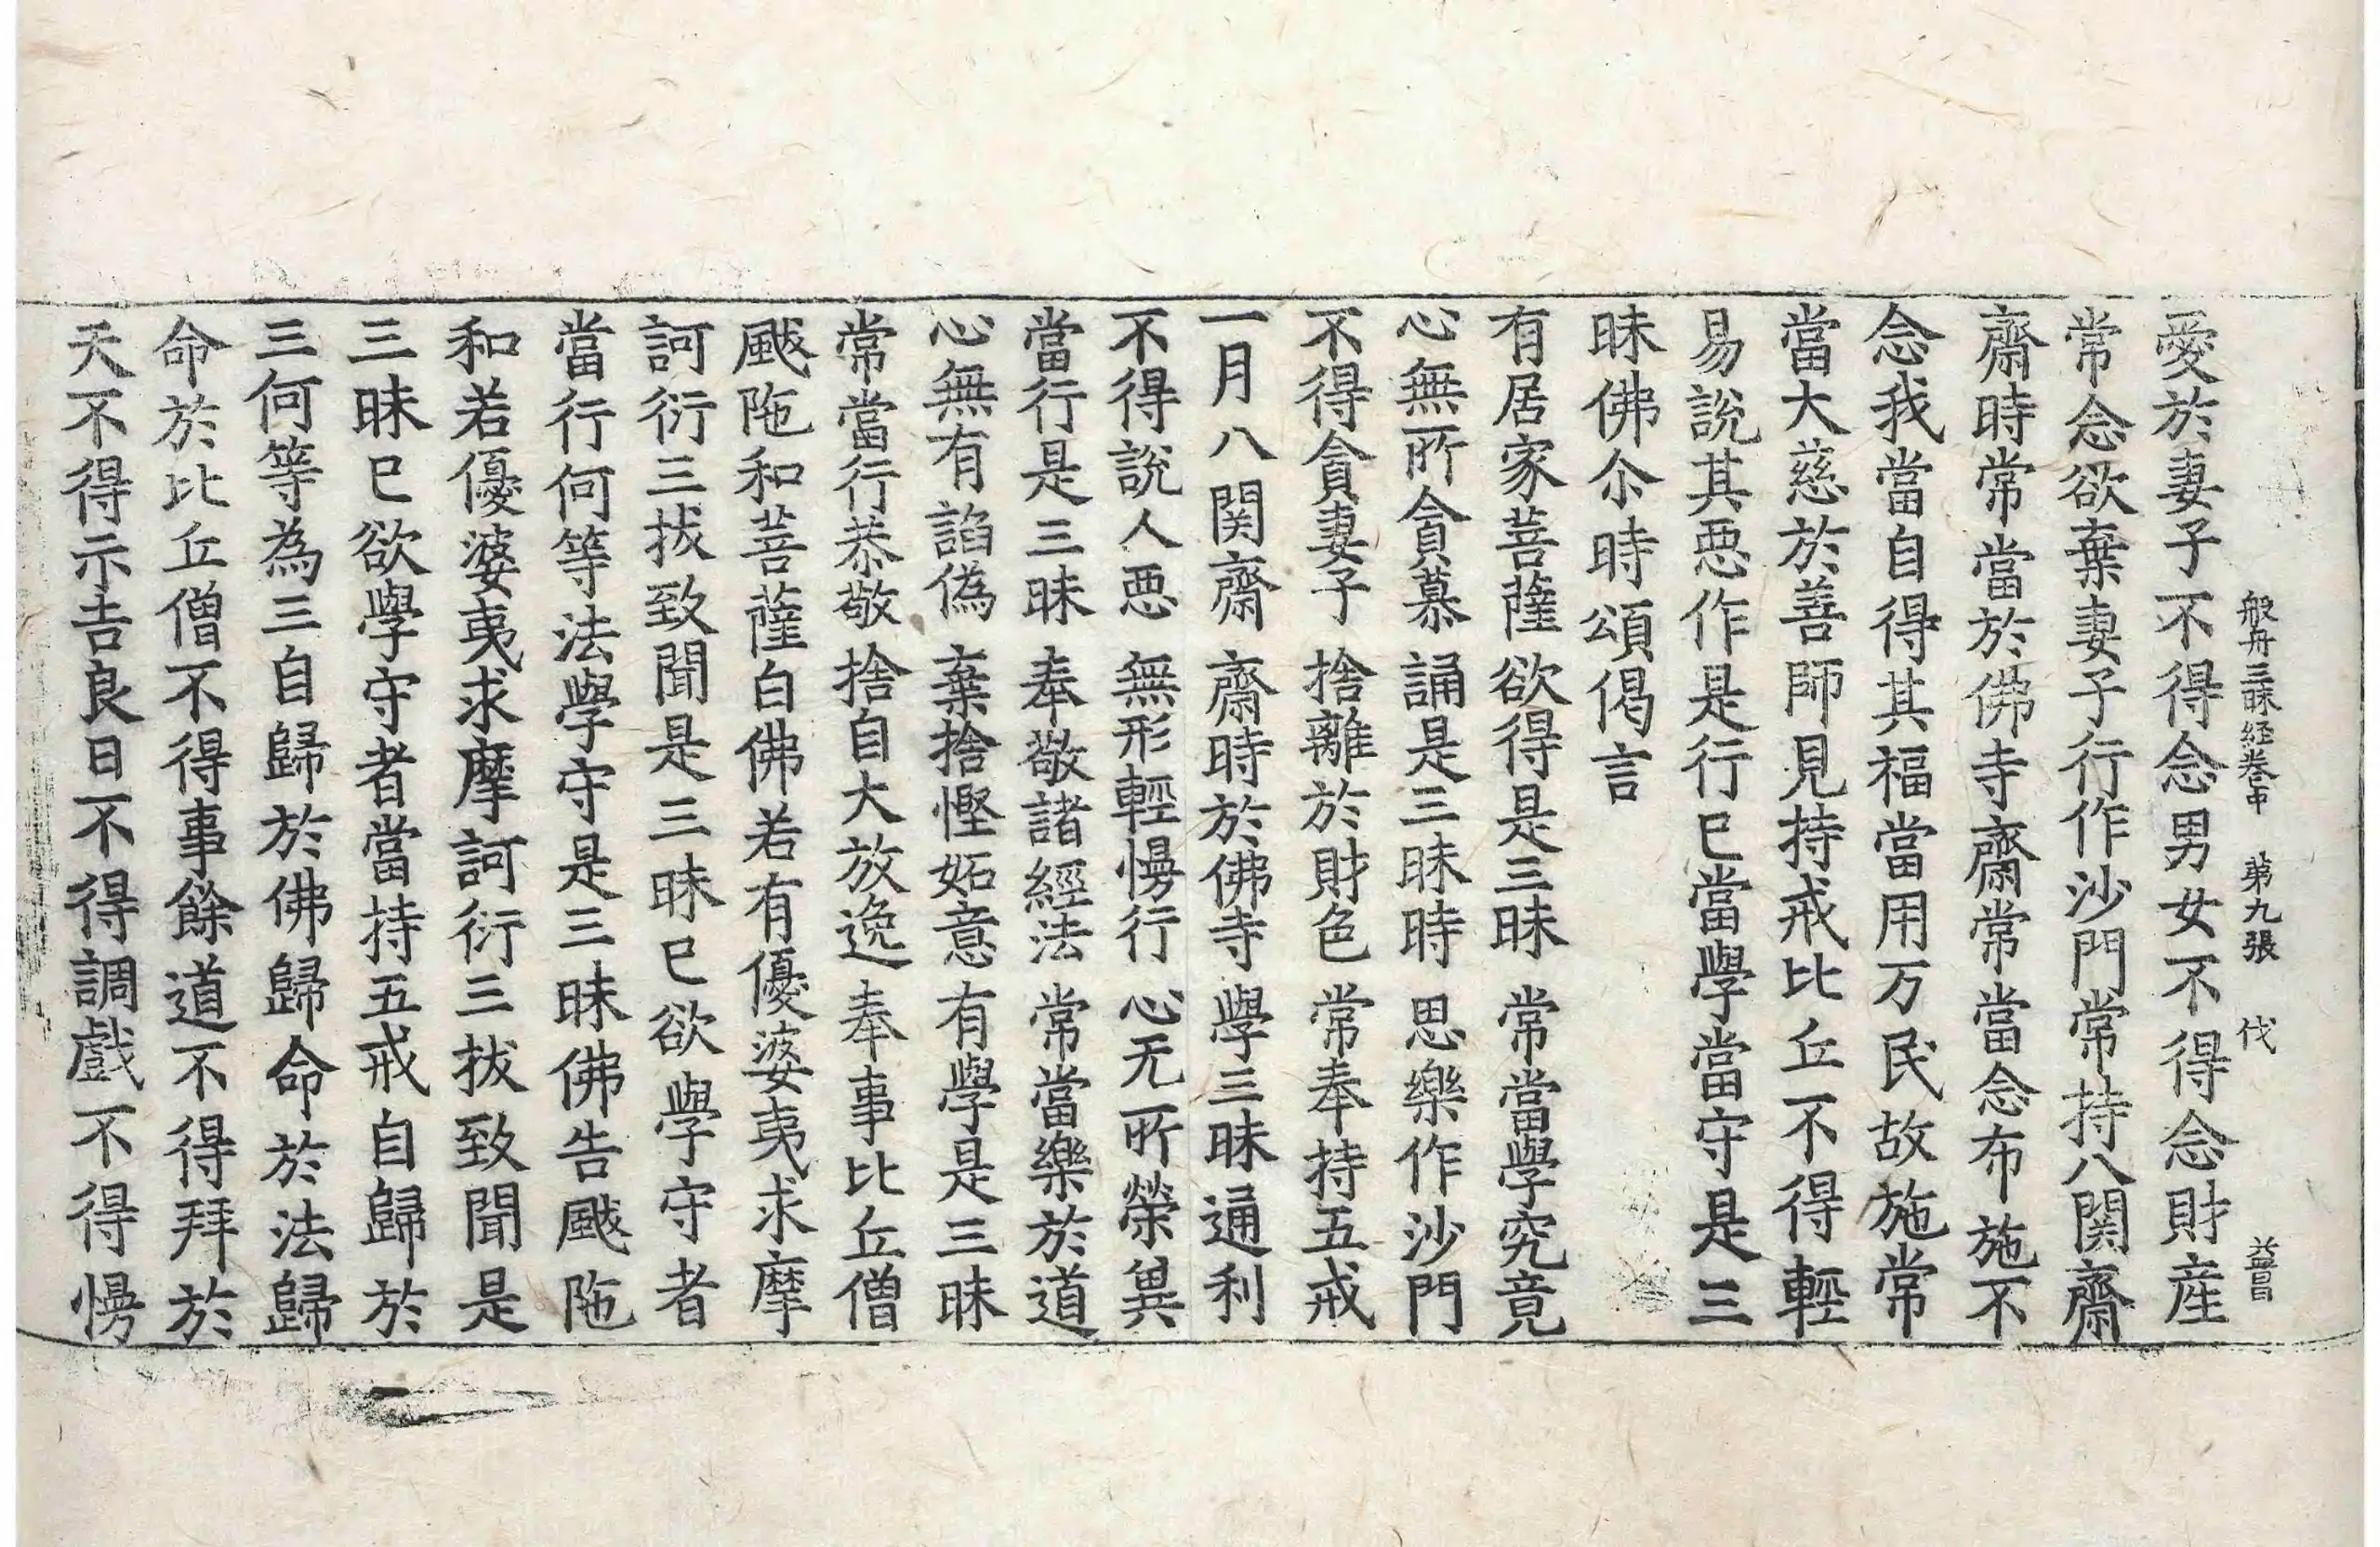 般舟三昧経卷中 第九張 伐 益昌
愛於妻子不得念男女不得念財産
常念欲棄妻子行作沙門常持八関齋
齋時常當於佛寺齋常當念布施不
念我當自得其福當用万民故施常
當大慈於善師見持戒比丘不得輕
易說其悪作是行已當學當守是三
昧佛尒時頌偈言
有居家菩薩 欲得是三昧 常當學究竟
心無所貪慕 誦是三昧時 思樂作沙門
不得貪妻子 捨離於財色 常奉持五戒
一月八関齋 齋時於佛寺 學三昧通利
不得說人悪 無形輕慢行 心无所榮異
當行是三昧 奉敬諸經法 常當樂於道
心無有諂偽 棄捨慳妬意 有學是三昧
常當行恭敬 捨自大放逸 奉事比丘僧
颰陁和菩薩白佛若有優婆夷求摩
訶衍三拔致聞是三昧已欲學守者
當行何等法學守是三昧佛告颰陁
和若優婆夷求摩訶衍三拔致聞是
三昧已欲學守者當持五戒自歸於
三何等為三自歸於佛歸命於法歸
命於比丘僧不得事餘道不得拜於
天不得示吉良日不得調戲不得慢